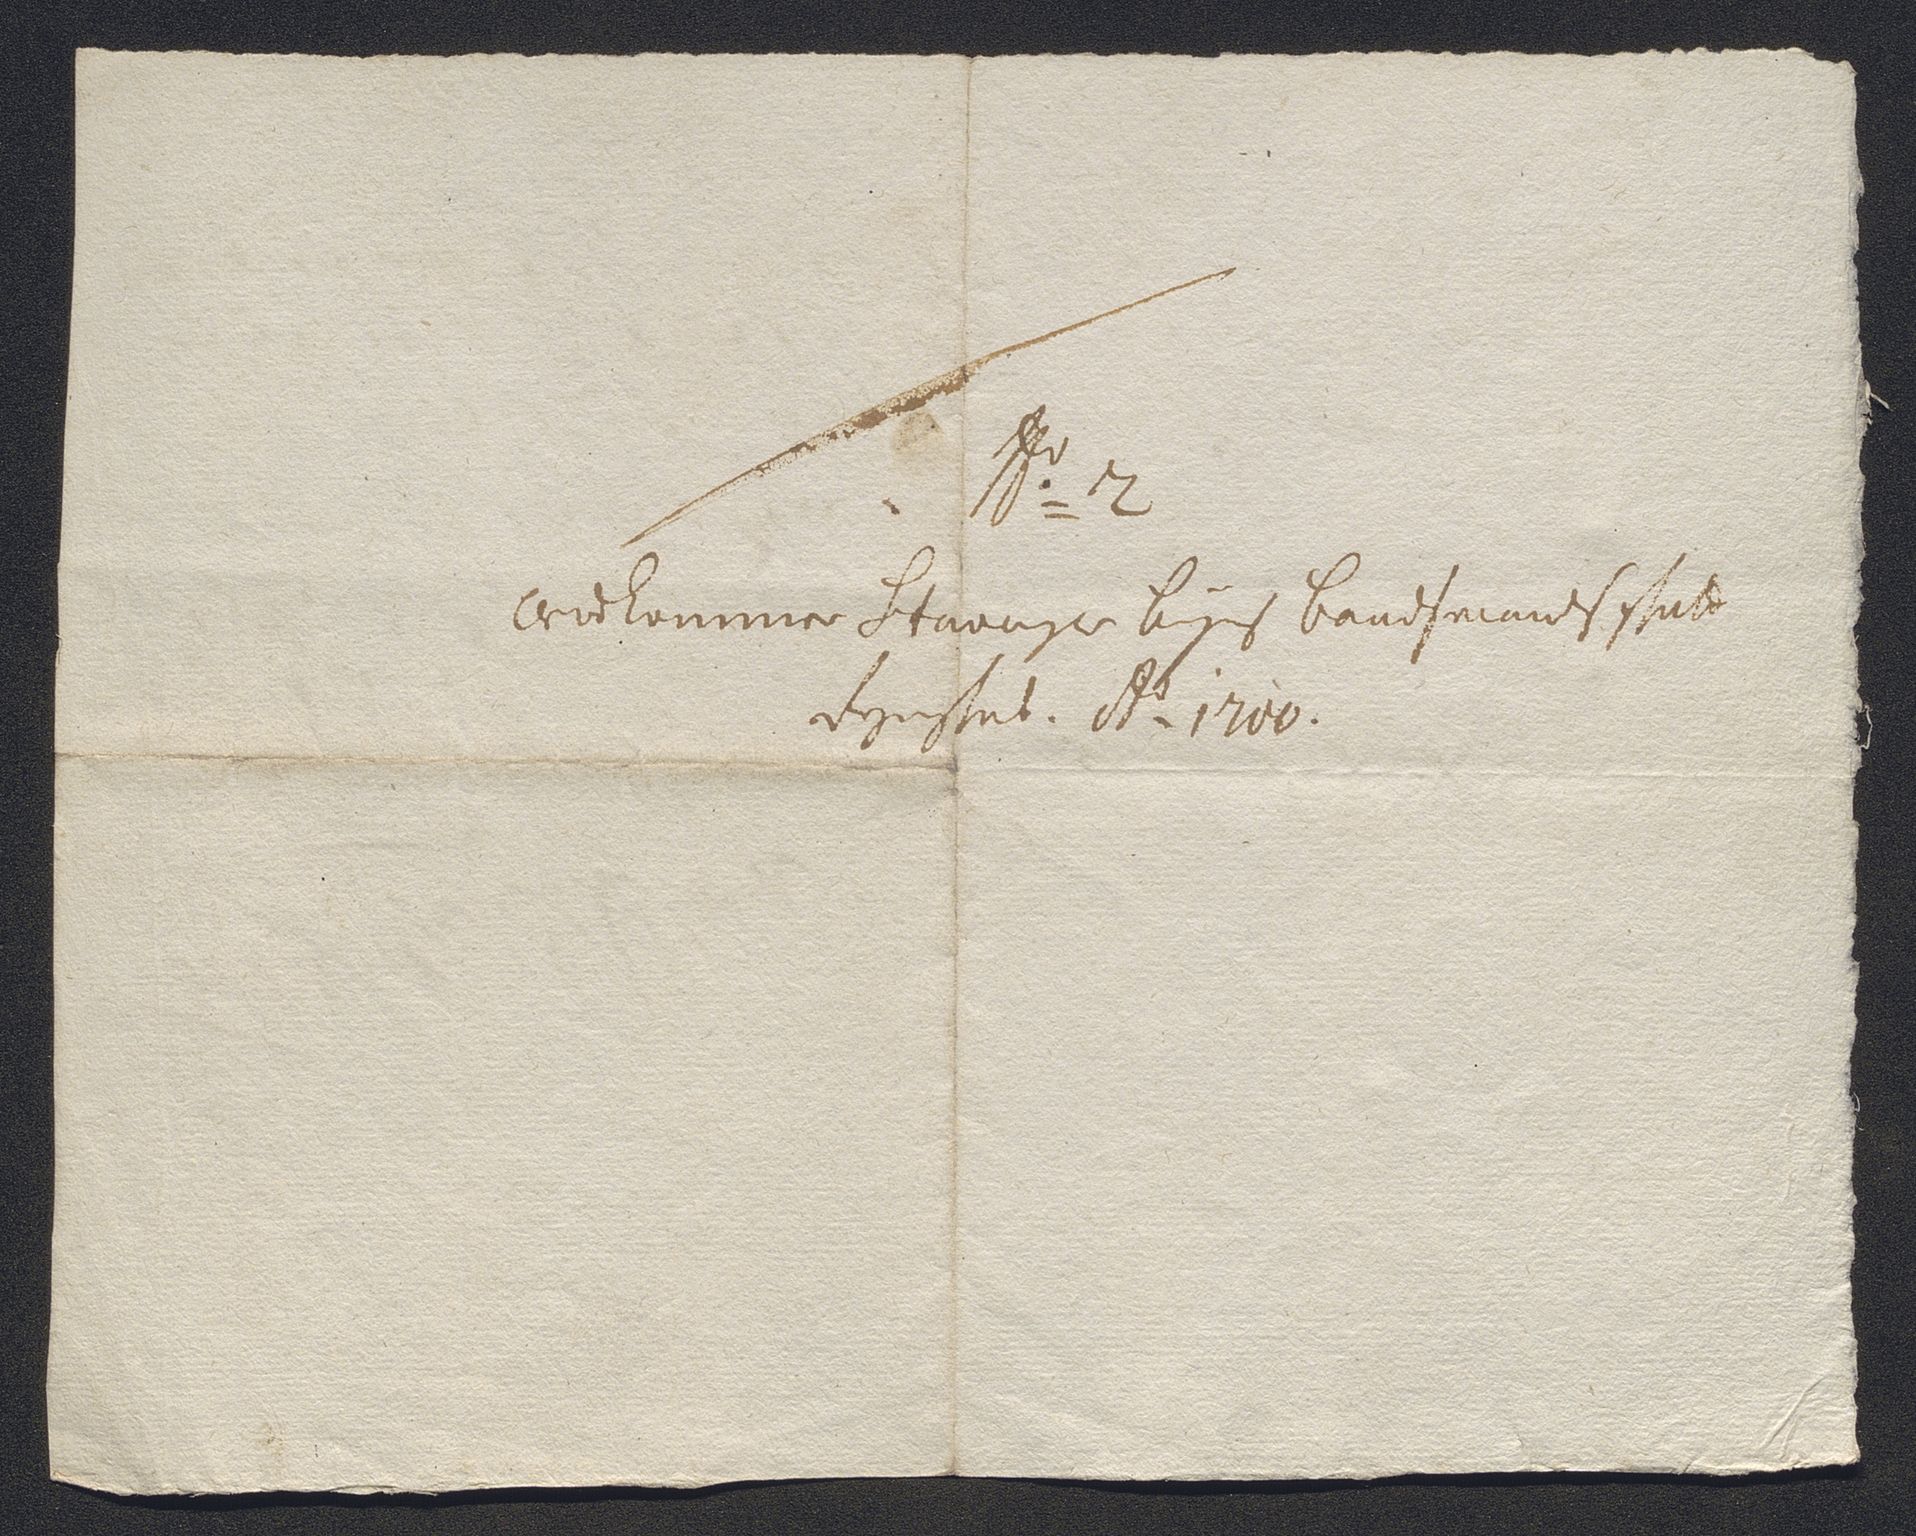 No. 2
Vedkommer Stavanger byes baadsmands skatt
Regnskab. Ao. 1700.